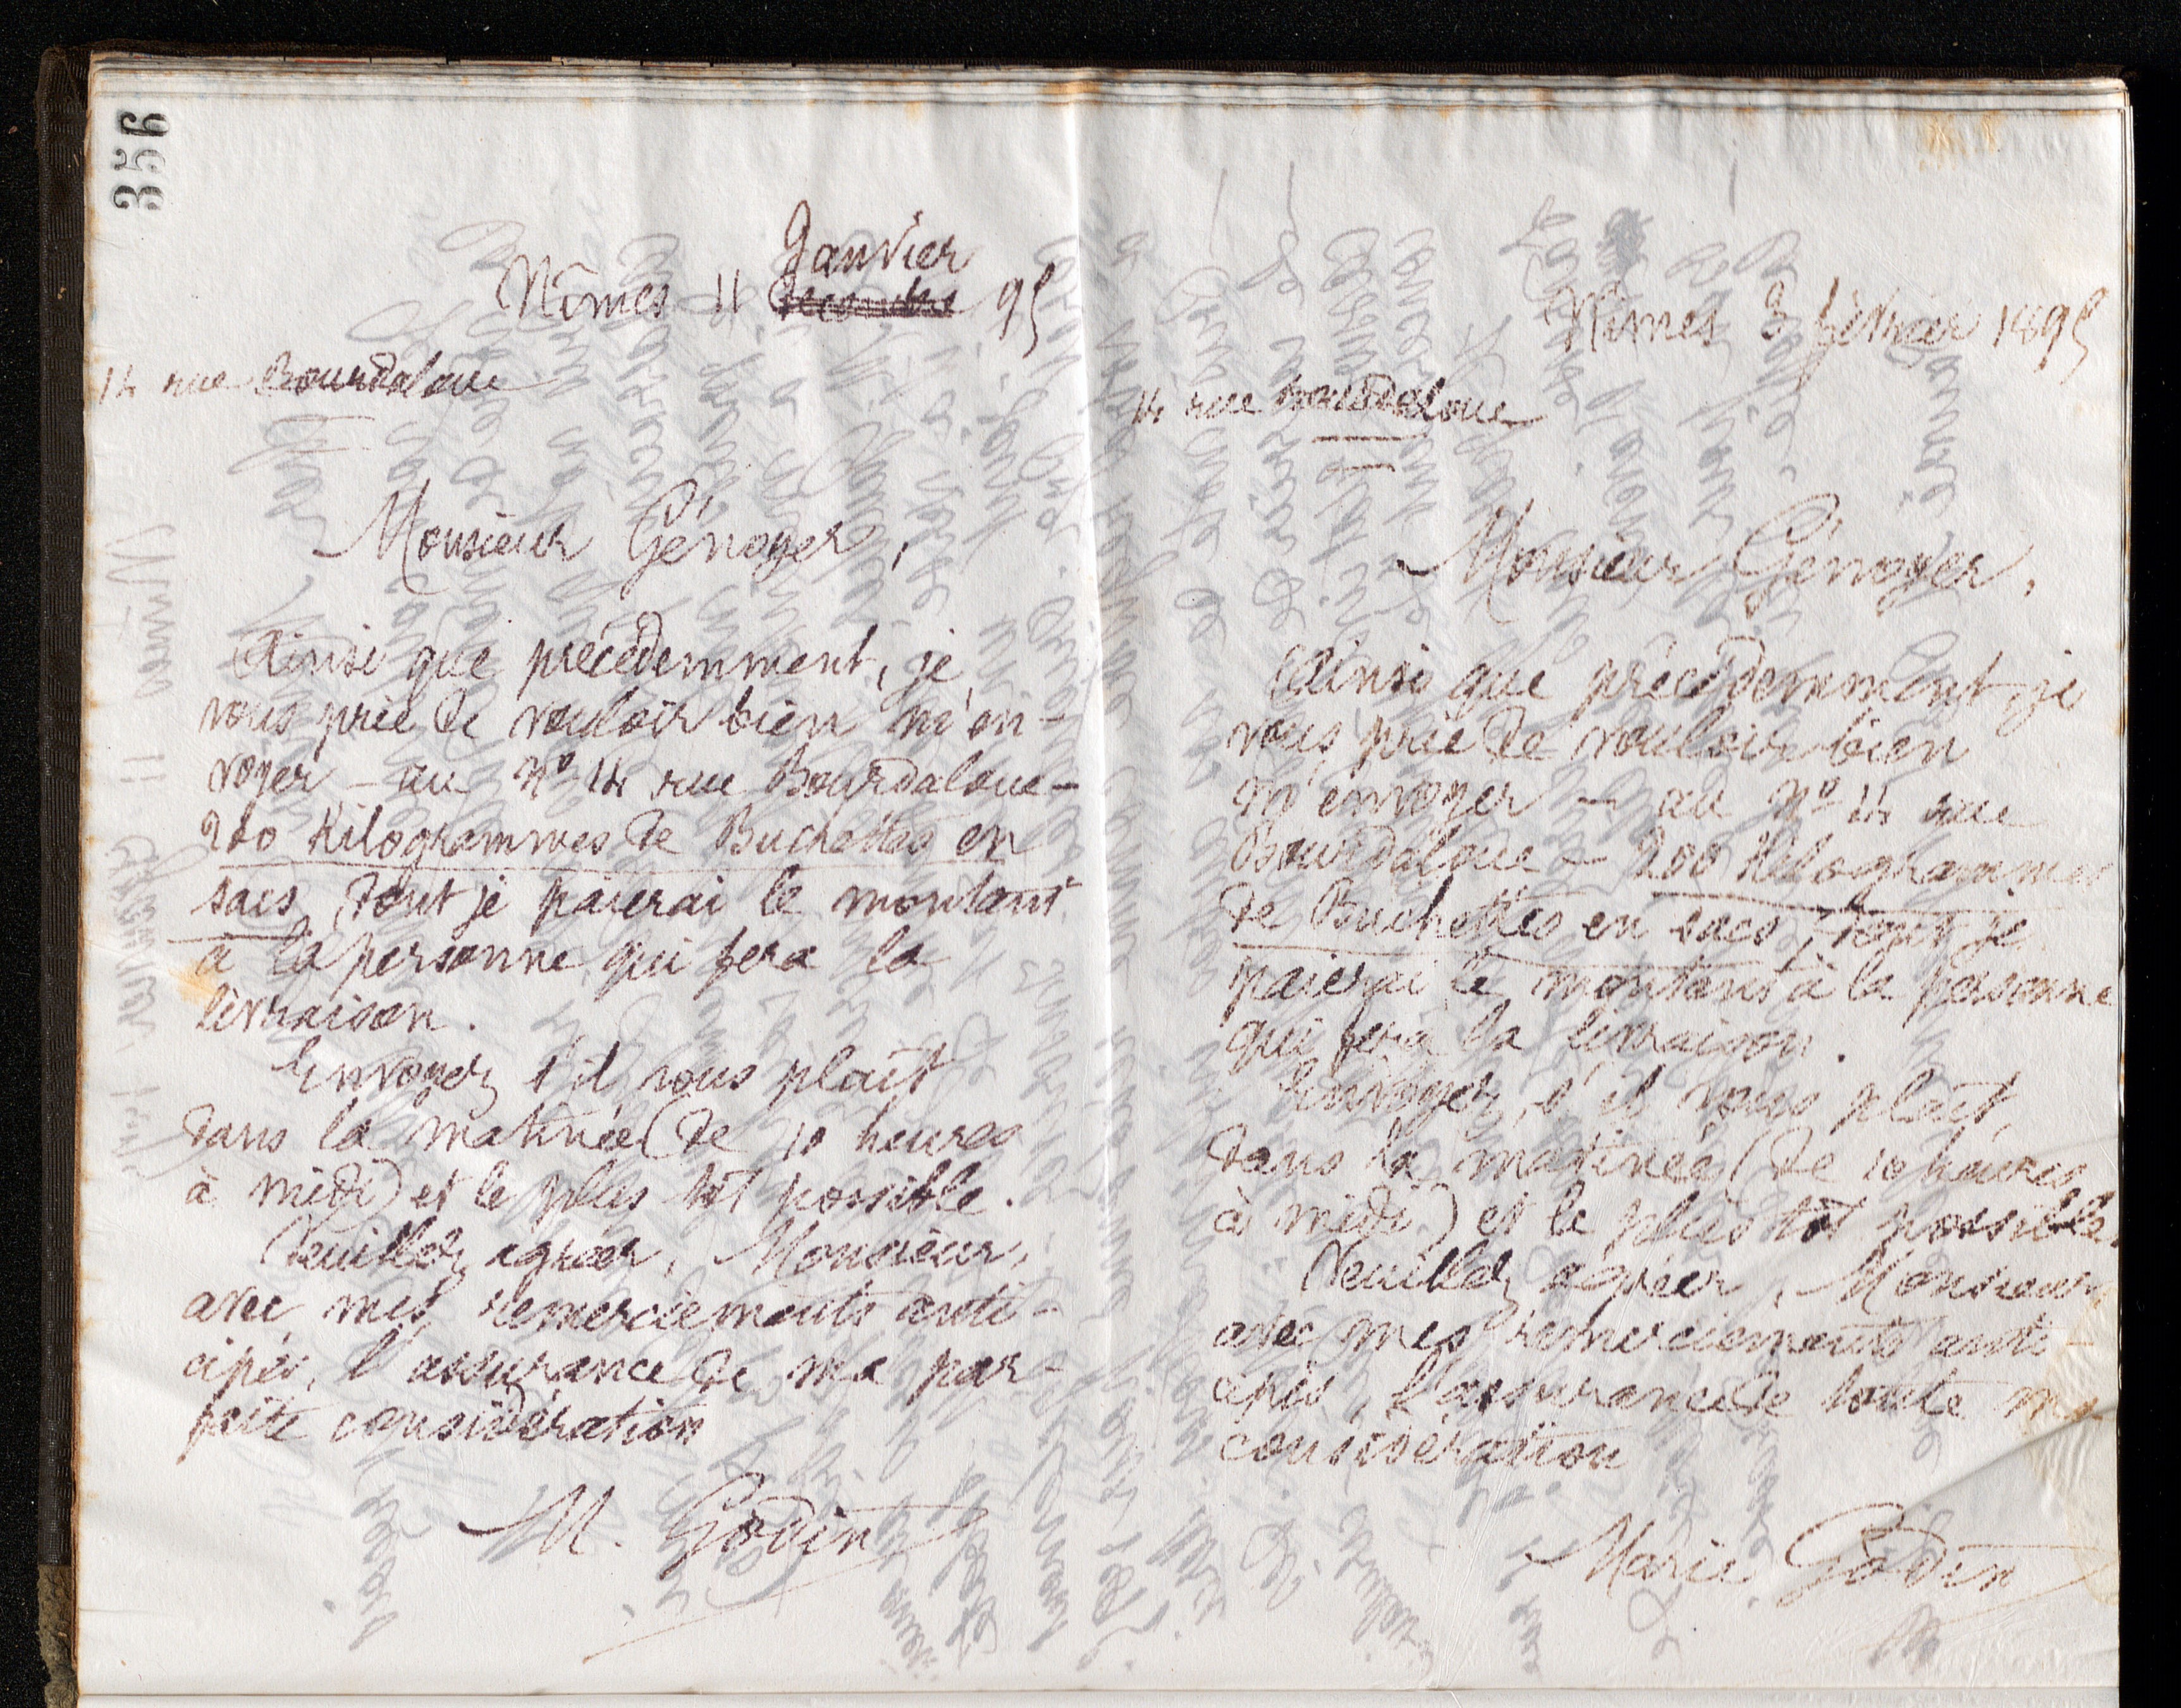 356
Nîmes 11 Janvier 95
14 rue Bourdaloue
Monsieur Génoyer,
Ainsi que précédemment, je
vous prie de vouloir bien m'en-
voyer - au No 14 rue Bourdaloue -
200 Kilogrammes de Buchettes en
sacs, dont je paierai le montant
à la personne qui fera la
livraison.
Envoyez s'il vous plaît
dans la matinée (de 10 heures
à midi) et le plus tôt possible.
Veuillez agréer, Monsieur,
avec mes remerciements anti-
cipés, l'assurance de ma par-
faite considération
M. Godin
Nîmes 3 février 1895
14 rue Bourdaloue
Monsieur Génoyer,
Ainsi que précédemment, je
vous prie de vouloir bien
m'envoyer - au No 14 rue
Bourdaloue - 200 Kilogrammes
de Buchettes en sacs, dont je
paierai le montant à la personne
qui fera la livraison.
Envoyez, s'il vous plaît,
dans la matinée (de 10 heures
à midi) et le plus tôt possible.
Veuillez agréer, Monsieur,
avec mes remerciements anti-
cipés, l'assurance de toute ma
considération
Marie Godin